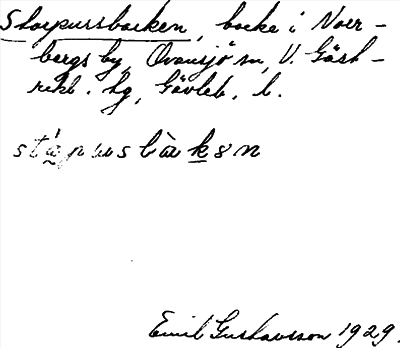 Storpussbacken, backe i Norr-
bergs by, Ovansjö sn, V. Gästr-
rikl. hg, Gävleb. l.
Emil Gustavsson 1929.